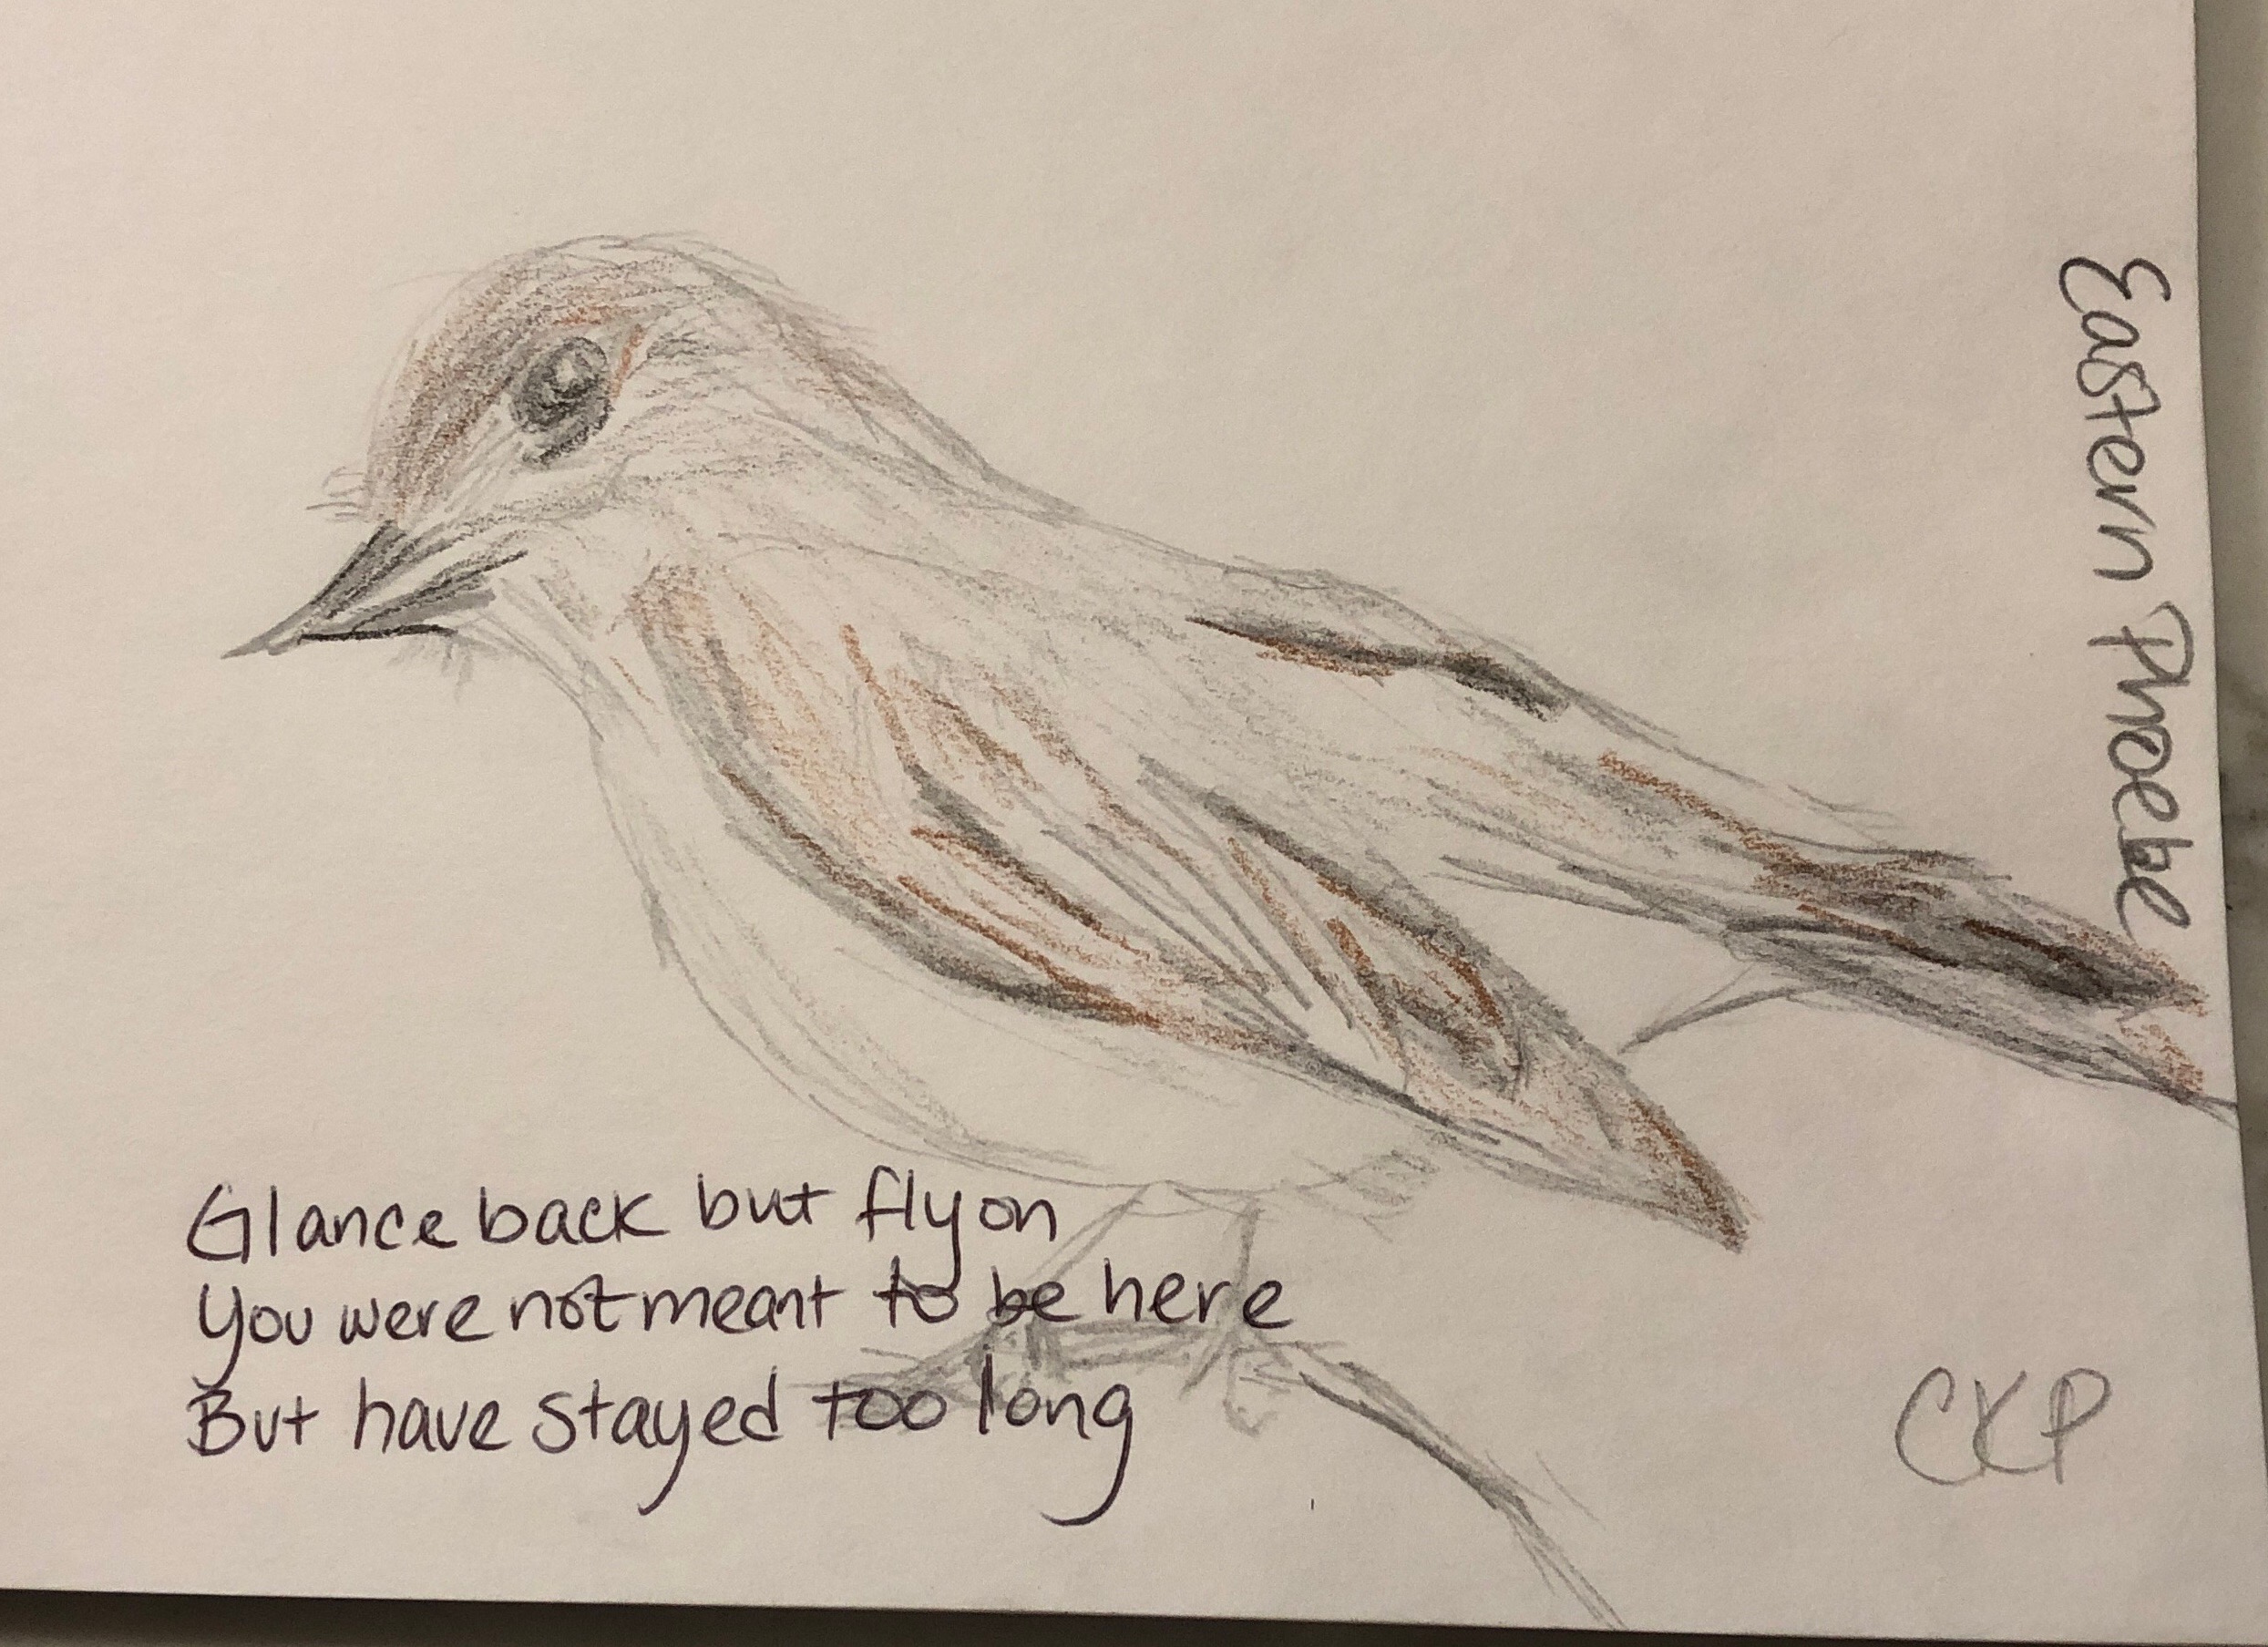 Eastern Phoebe
Glance back but fly on
You were not meant to be here
But have stayed too long
CKP